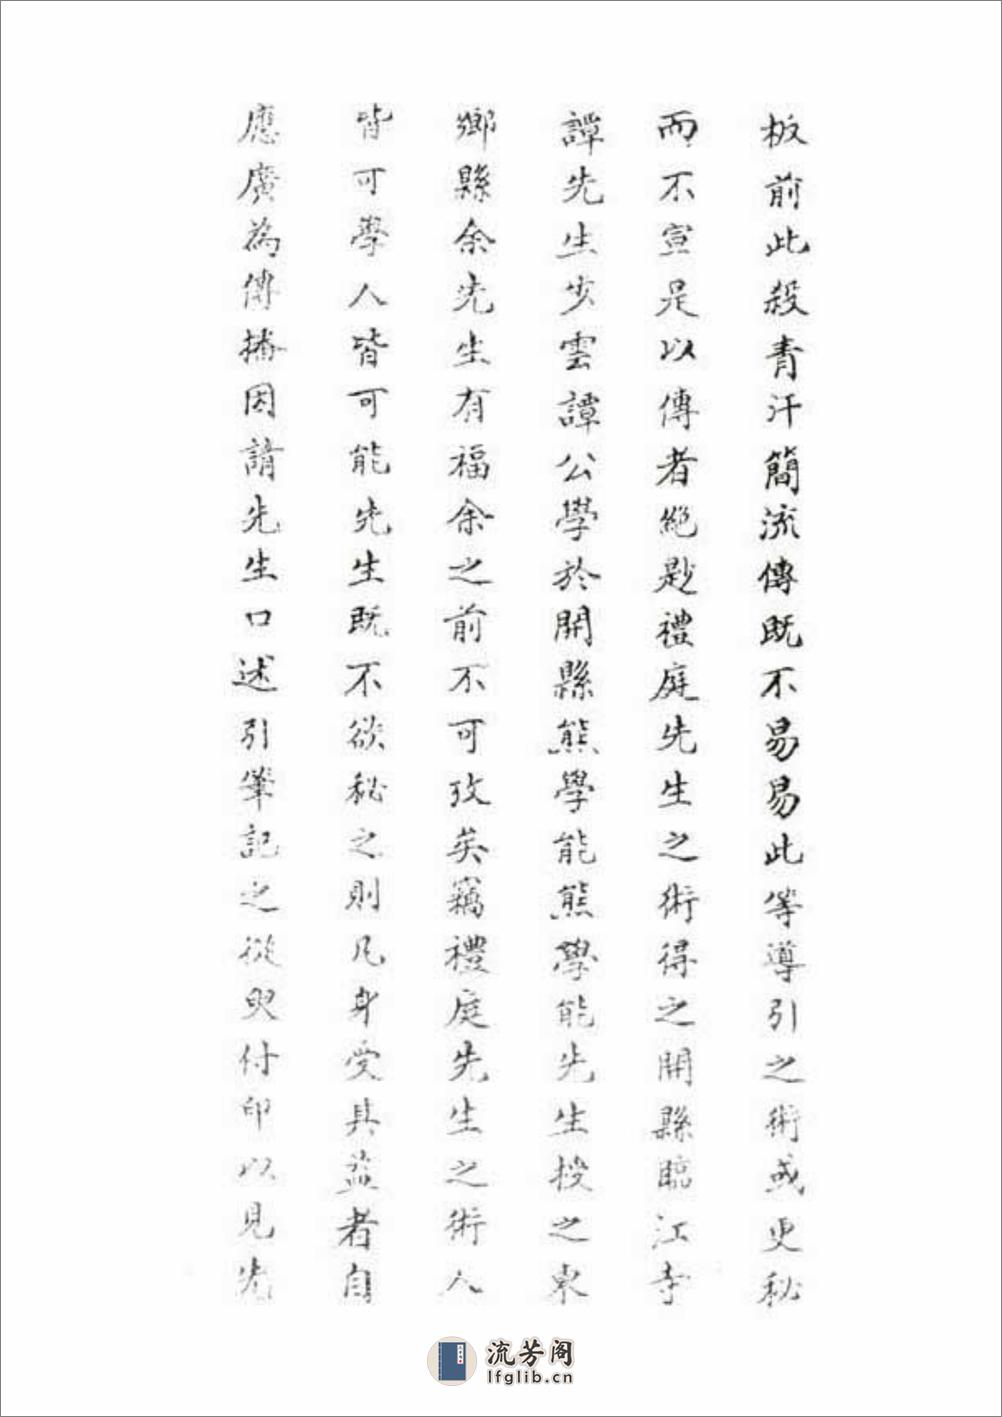 板前此殺青汗簡流傳既不易易此等導引之術或更秘
而不宣是以傳者絕尟禮庭先生之術得之開縣臨江寺
譚先生步雲譚公學於開縣熊學能熊學能先生授之東
鄉縣余先生有福余之前不可攷矣竊禮庭先生之術人
皆可學人皆可能先生既不欲秘之則凡身受其益者自
應廣為傳播因請先生口述引筆記之從臾付印以見先
流芳阁
lfglib.cn